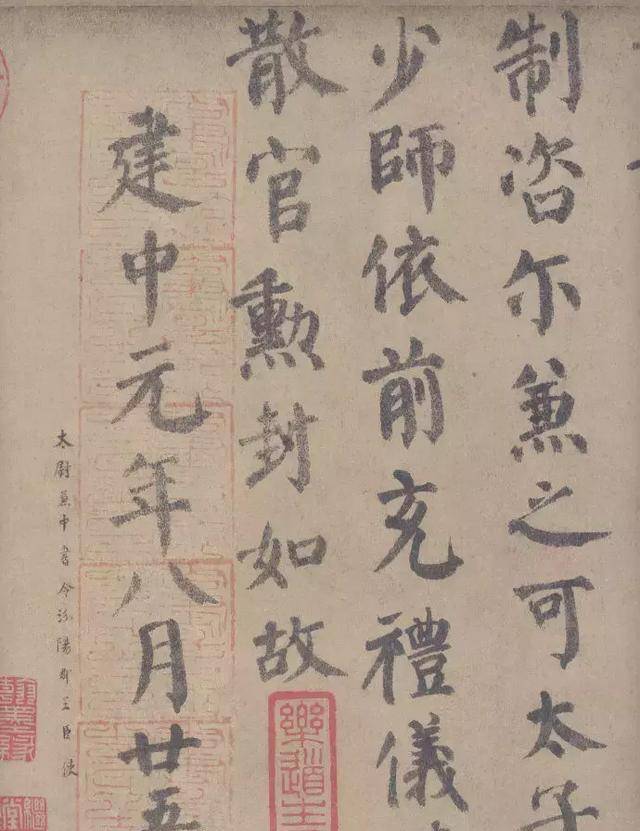 制咨尔兼之可太子
少師依前充禮儀
散官勳封如故
樂道主
建中元年八月廿五
太尉兼中書令汾陽郡王臣使